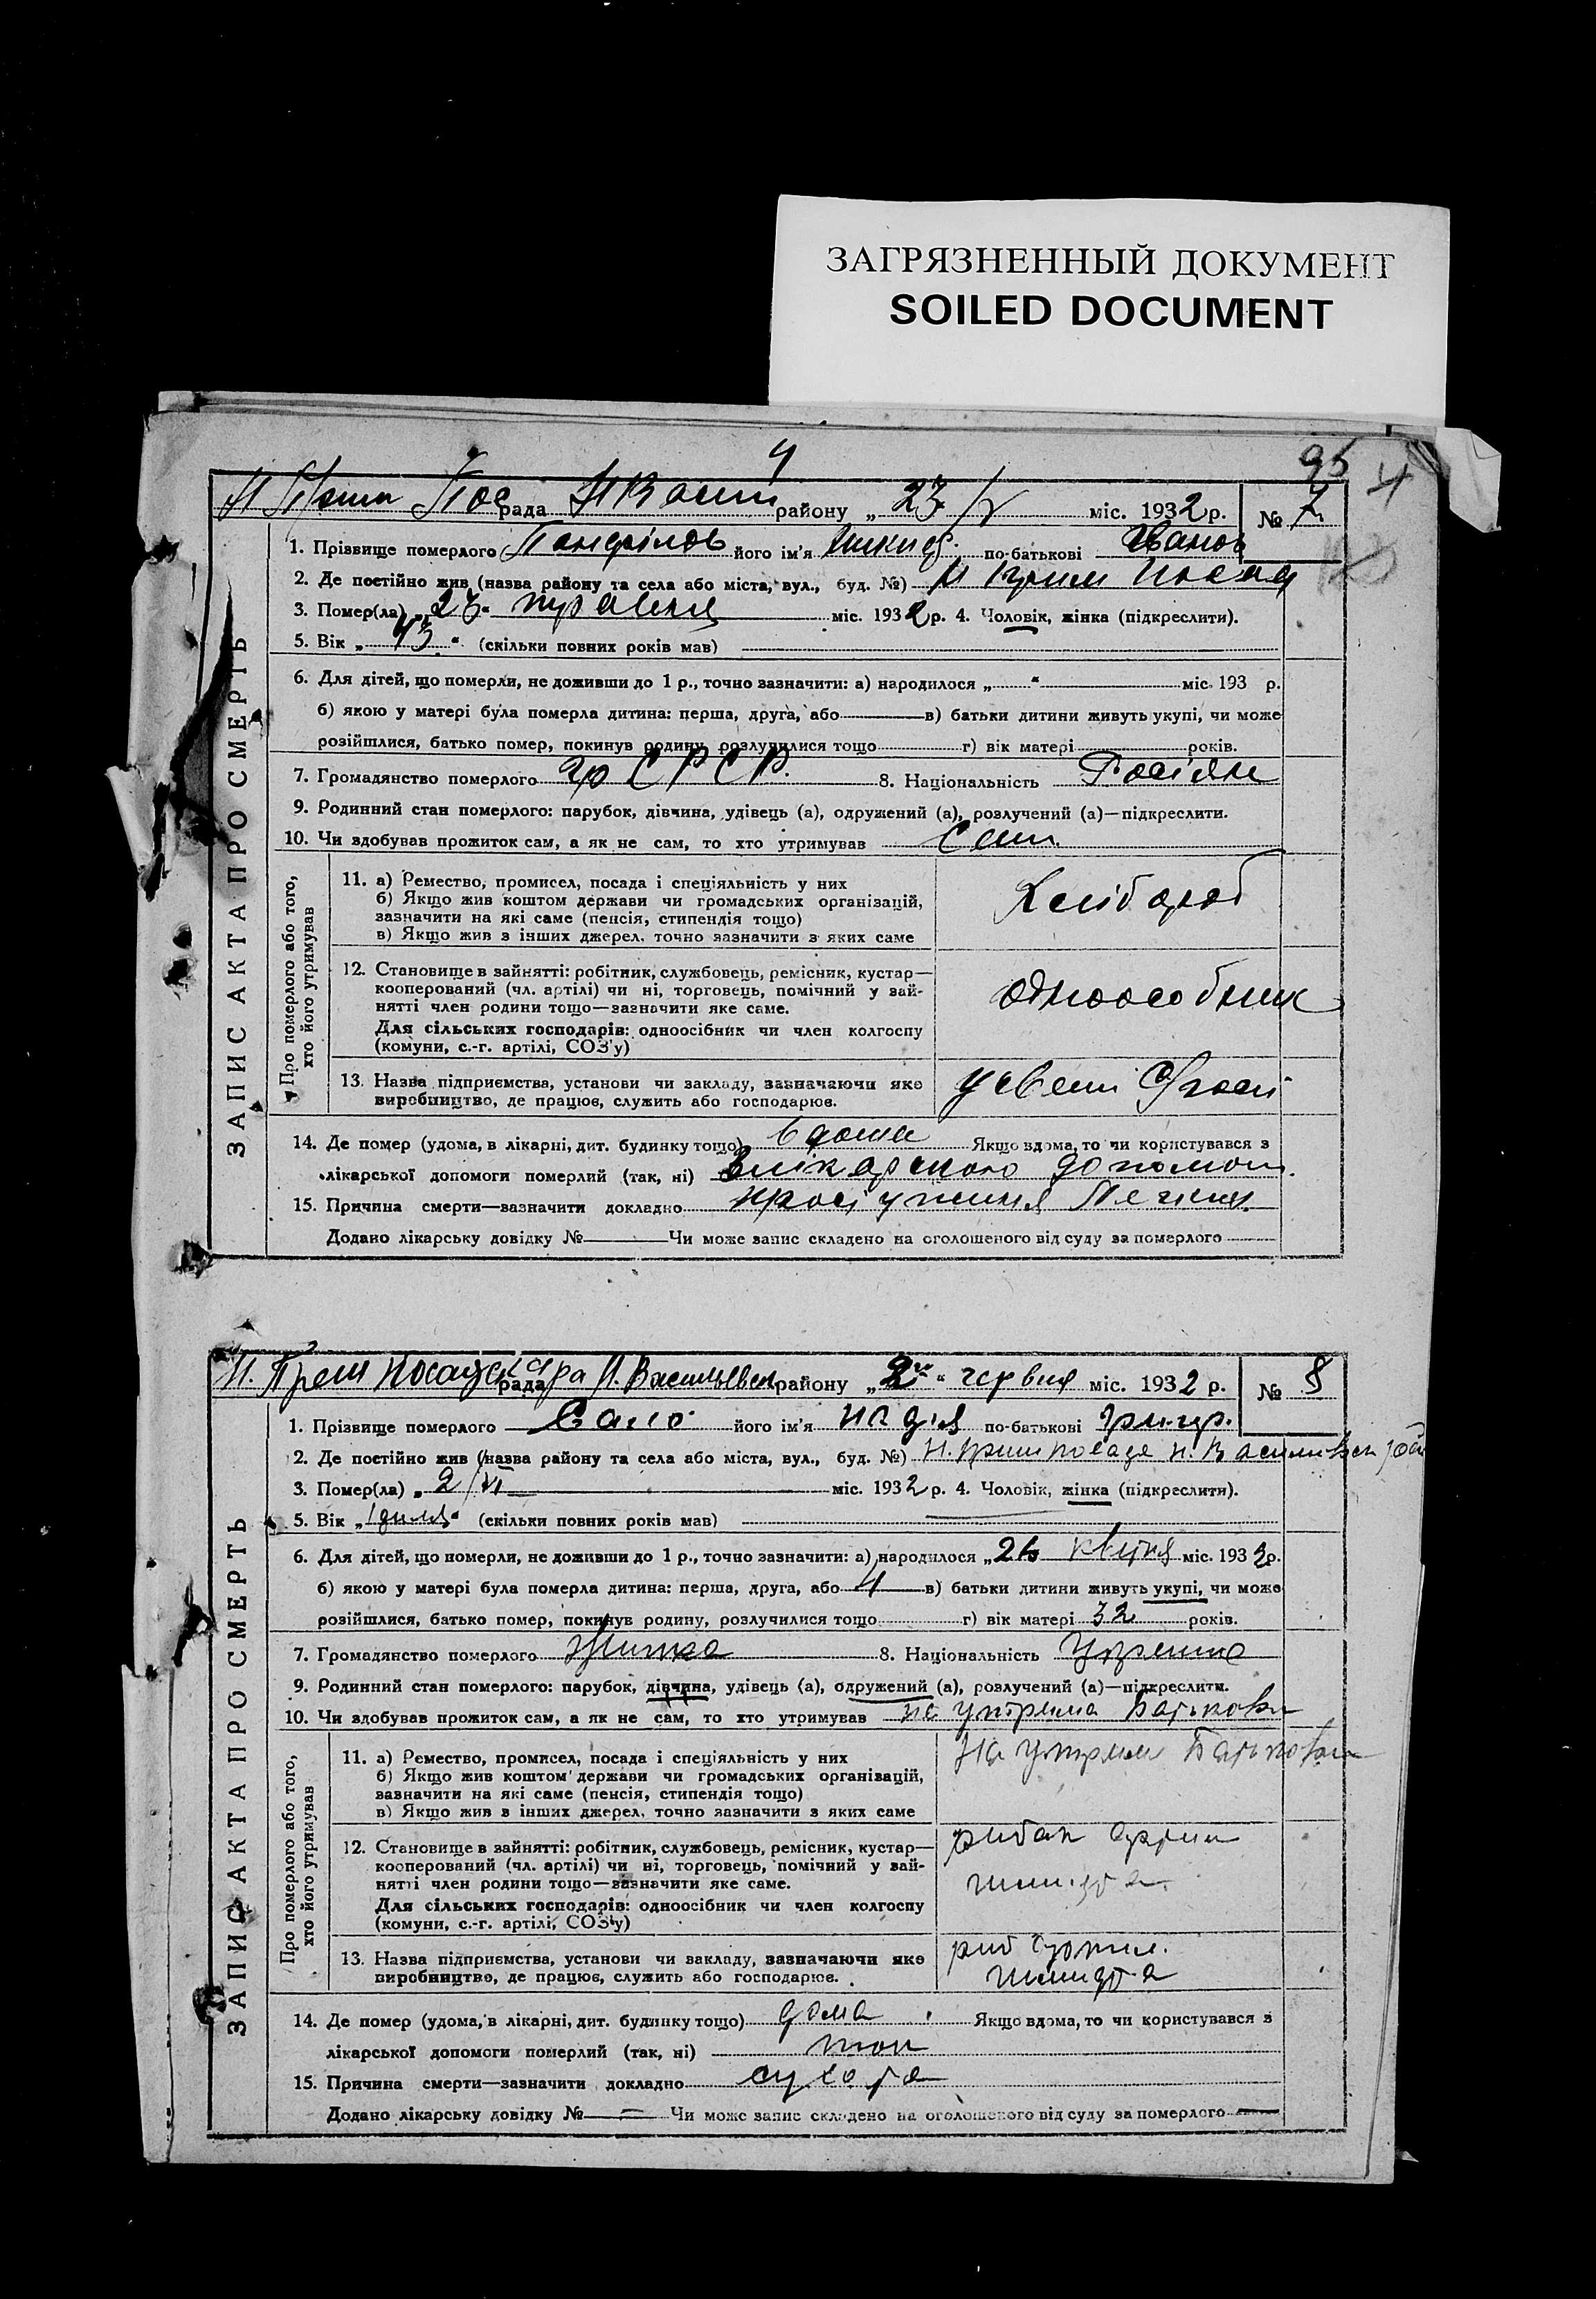 ЗАГРЯЗНЕННЫЙ ДОКУМЕНТ
SOILED DOCUMENT
95
рада району „ 23/V міс. 1932 р. № 7
ЗАПИС АКТА ПРО СМЕРТЬ
1. Прізвище померлого Панфілов його ім'я по-батькові Іванов
2. Де постійно жив (назва району та села або міста, вул., буд. №)
3. Помер(ла) „23“ травня міс. 1932 р. 4. Чоловік, жінка (підкреслити).
5. Вік „ “ (скільки повних років мав)
6. Для дітей, що померли, не доживши до 1 р., точно зазначити: а) народилося „ “ міс. 193 р.
б) якою у матері була померла дитина: перша, друга, або в) батьки дитини живуть укупі, чи може
розійшлися, батько помер, покинув родину, розлучилися тощо г) вік матері років.
7. Громадянство померлого гр СРСР. 8. Національність
9. Родинний стан померлого: парубок, дівчина, удівець (а), одружений (а), розлучений (а)—підкреслити.
10. Чи здобував прожиток сам, а як не сам, то хто утримував Сам
Про померлого або того, хто його утримував
11. а) Ремество, промисел, посада і спеціяльність у них
б) Якщо жив коштом держави чи громадських організацій,
зазначити на які саме (пенсія, стипендія тощо)
в) Якщо жив з інших джерел, точно зазначити з яких саме
Хлібороб
12. Становище в зайнятті: робітник, службовець, ремісник, кустар—
кооперований (чл. артілі) чи ні, торговець, помічний у зай-
нятті член родини тощо—зазначити яке саме.
Для сільських господарів: одноосібник чи член колгоспу
(комуни, с.-г. артілі, СОЗ'у)
одноособник
13. Назва підприємства, установи чи закладу, зазначаючи яке
виробництво, де працює, служить або господарює.
14. Де помер (удома, в лікарні, дит. будинку тощо) вдома Якщо вдома, то чи користувався з
лікарської допомоги померлий (так, ні)
15. Причина смерти—зазначити докладно
Додано лікарську довідку № Чи може запис складено на оголошеного від суду за померлого
рада району „2“ червня міс. 1932 р. № 8
ЗАПИС АКТА ПРО СМЕРТЬ
1. Прізвище померлого Сало його ім'я Надія по-батькові Григор.
2. Де постійно жив (назва району та села або міста, вул., буд. №)
3. Помер(ла) „ 2/VI міс. 1932 р. 4. Чоловік, жінка (підкреслити).
5. Вік „ “ (скільки повних років мав)
6. Для дітей, що померли, не доживши до 1 р., точно зазначити: а) народилося „26 квітня міс. 1932 р.
б) якою у матері була померла дитина: перша, друга, або 4 в) батьки дитини живуть укупі, чи може
розійшлися, батько помер, покинув родину, розлучилися тощо г) вік матері 32 років.
7. Громадянство померлого 8. Національність
9. Родинний стан померлого: парубок, дівчина, удівець (а), одружений (а), розлучений (а)—підкреслити.
10. Чи здобував прожиток сам, а як не сам, то хто утримував на
Про померлого або того, хто його утримував
11. а) Ремество, промисел, посада і спеціяльність у них
б) Якщо жив коштом держави чи громадських організацій,
зазначити на які саме (пенсія, стипендія тощо)
в) Якщо жив з інших джерел, точно зазначити з яких саме
На
12. Становище в зайнятті: робітник, службовець, ремісник, кустар—
кооперований (чл. артілі) чи ні, торговець, помічний у зай-
нятті член родини тощо—зазначити яке саме.
Для сільських господарів: одноосібник чи член колгоспу
(комуни, с.-г. артілі, СОЗ'у)
рибак
13. Назва підприємства, установи чи закладу, зазначаючи яке
виробництво, де працює, служить або господарює.
14. Де помер (удома, в лікарні, дит. будинку тощо) дома Якщо вдома, то чи користувався з
лікарської допомоги померлий (так, ні)
15. Причина смерти—зазначити докладно сухота
Додано лікарську довідку № — Чи може запис складено на оголошеного від суду за померлого —